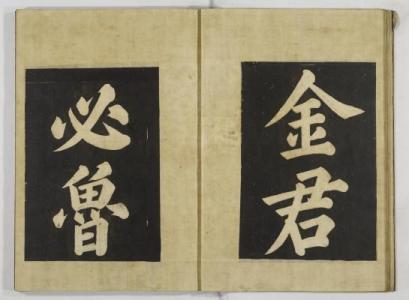 金君
必魯